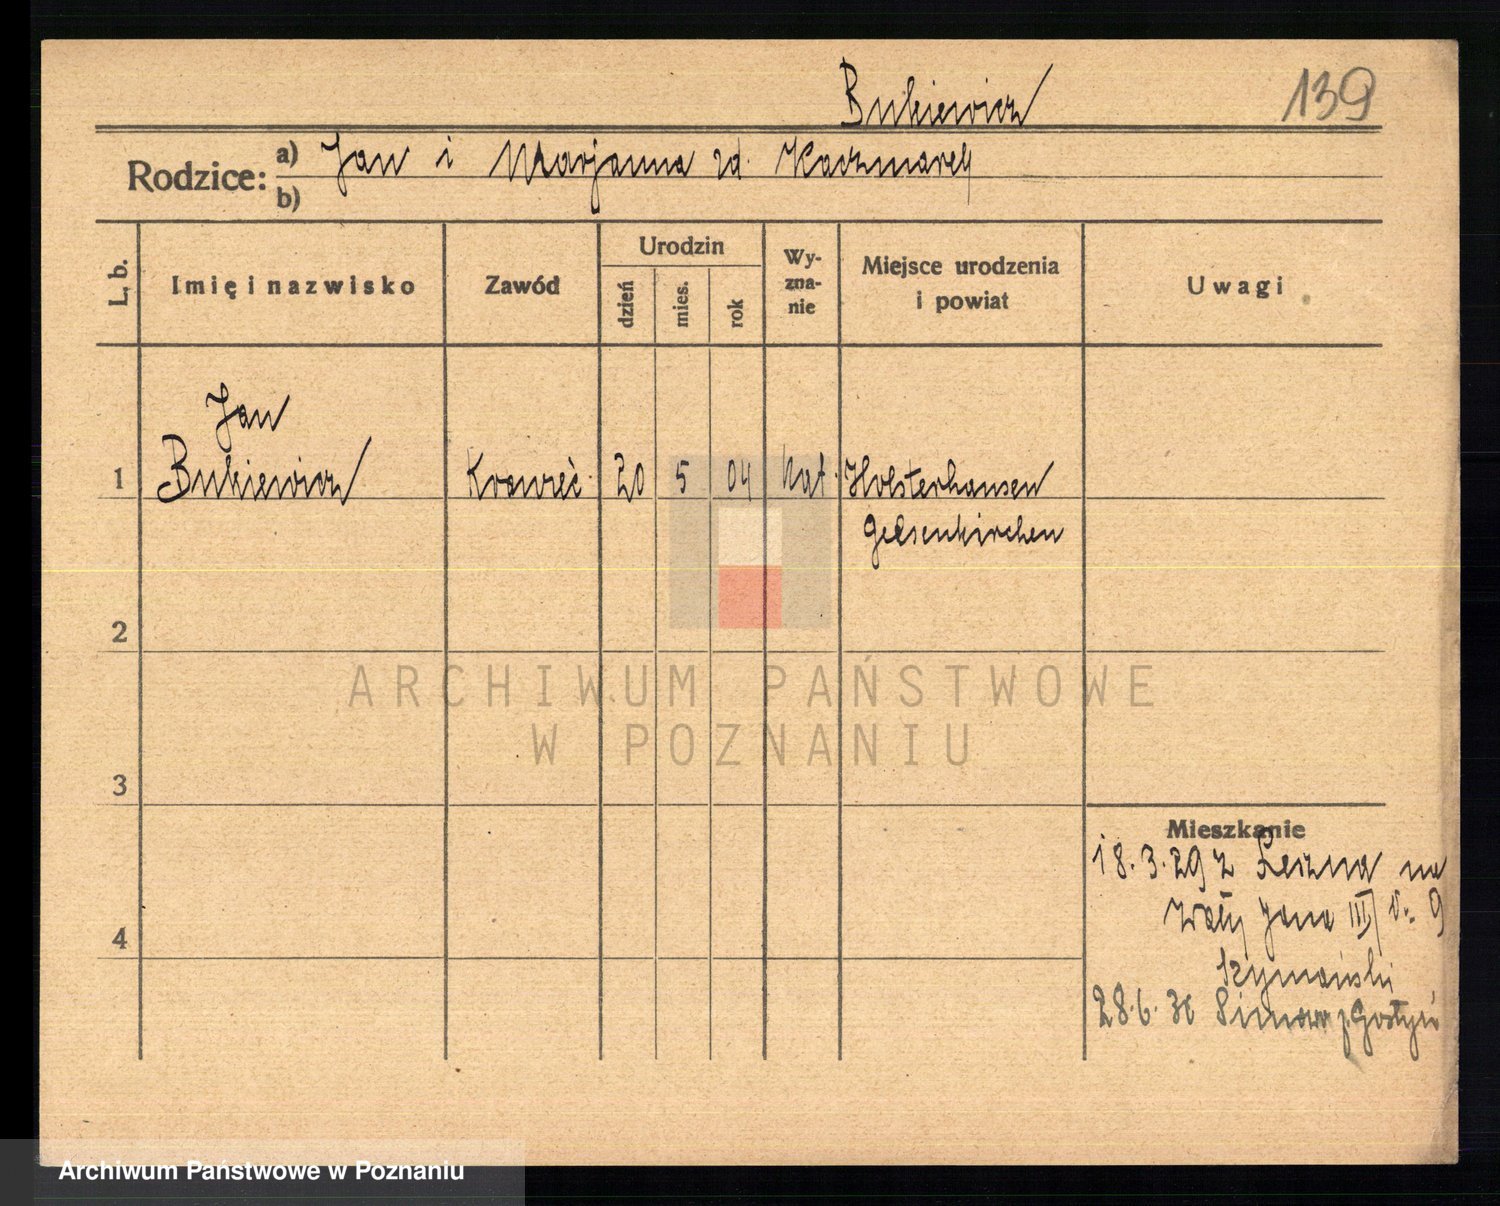 Bukiewicz
139
Rodzice: a) Jan i Marjanna zd. Kaczmarek
b)
L. b.
Imię i nazwisko
Zawód
Urodzin
dzień
mies.
rok
Wy-
zna-
nie
Miejsce urodzenia
i powiat
Uwagi
Jan
1 Bukiewicz Krawiec 20 5 04 kat. Holsterhausen
Gelsenkirchen
2
ARCHIWUM PAŃSTWOWE
W POZNANIU
3
Mieszkanie
18.3.29 z Leszna na
Wały Jana III 9
4
Szymański
28.6.30 p. Gostyń
Archiwum Państwowe w Poznaniu